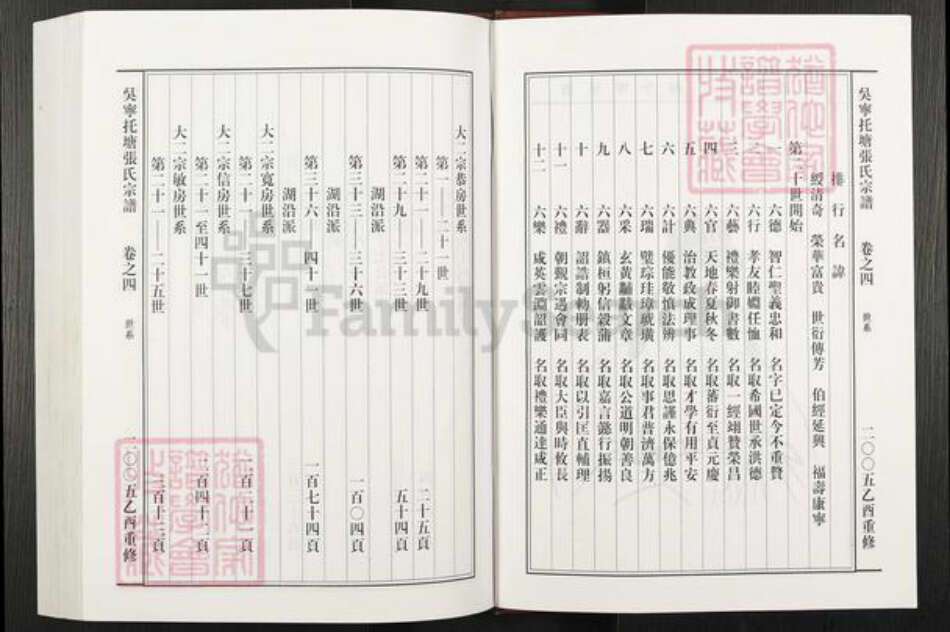 吳寧托塘張氏宗譜 卷之四 世系 二〇〇五乙酉重修
排行名諱
綬清奇 榮華富貴 世衍傳芳 伯經延興 福壽康寧
第二十世開始
一 六德 智仁聖義忠和 名字已定今不重贅
二 六行 孝友睦婣任恤 名取希國世承洪德
三 六藝 禮樂射御書數 名取一經翊贊榮昌
四 六官 天地春夏秋冬 名取蕃衍至貞元慶
五 六典 治教政成理事 名取才學有用平安
六 六計 優能敬慎法辨 名取思謹永保億兆
七 六瑞 璧琮珪璋琥璜 名取事君普濟萬方
八 六采 玄黃黼黻文章 名取公道明朝善良
九 六器 鎮桓躬信穀蒲 名取嘉言懿行振揚
十 六辭 詔誥制勅册表 名取以引匡直輔理
十一 六禮 朝覲宗遇會同 名取大臣與時攸長
十二 六樂 咸英雲淵韶濩 名取禮樂通達咸正
大二宗恭房世系
第一——二十一世 二十五頁
第二十一——二十九世
第二十九——三十三世 五十四頁
湖沿派
第三十三——三十六世 一百〇四頁
湖沿派
第三十六——四十一世 一百七十四頁
湖沿派
大二宗寬房世系
第二十一——三十七世 二百一十一頁
大二宗信房世系
第二十一至四十一世 二百四十二頁
大二宗敏房世系
第二十一——二十五世 三百十三頁
吳寧托塘張氏宗譜 卷之四 世系 二〇〇五乙酉重修
FamilyS